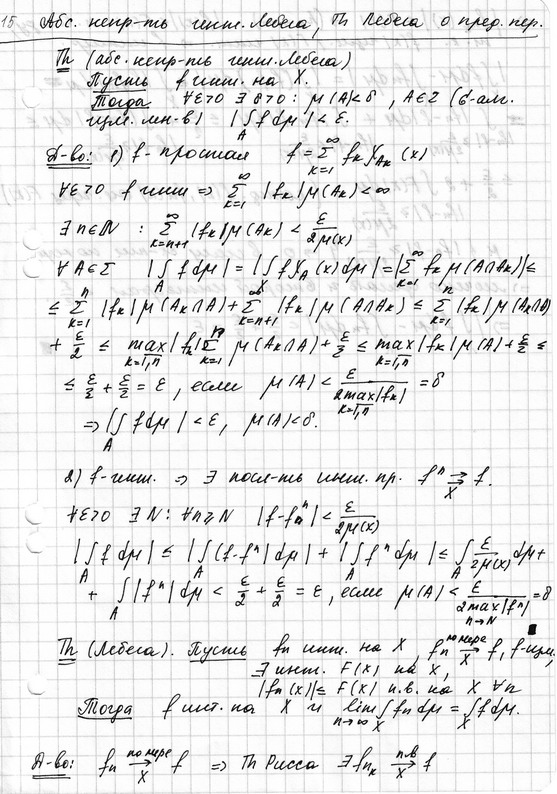 15 Абс. непр-ть инт. Лебега, Th Лебега о пред. пер.
Th (абс. непр-ть инт. Лебега)
Пусть f инт. на X.
Тогда ∀ε>0 ∃ δ>0: μ(A)<δ, A∈Σ (σ-алг.
изм. мн-в) |∫_A f dμ| < ε.
Д-во: 1) f - простая f = Σ_{k=1}^∞ f_k χ_{A_k}(x)
∀ε>0 f инт ⇒ Σ_{k=1}^∞ |f_k| μ(A_k) < ∞
∃ n∈N : Σ_{k=n+1}^∞ |f_k| μ(A_k) < ε/2μ(x)
∀ A∈Σ |∫_A f dμ| = |∫_X f χ_A(x) dμ| = |Σ_{k=1}^∞ f_k μ(A∩A_k)| ≤
≤ Σ_{k=1}^n |f_k| μ(A_k∩A) + Σ_{k=n+1}^∞ |f_k| μ(A∩A_k) ≤ Σ_{k=1}^n |f_k| μ(A_k∩A)
+ ε/2 ≤ max_{k=1,n} |f_k| Σ_{k=1}^n μ(A_k∩A) + ε/2 ≤ max_{k=1,n} |f_k| μ(A) + ε/2 ≤
≤ ε/2 + ε/2 = ε, если μ(A) < ε/(2 max_{k=1,n} |f_k|) = δ
⇒ |∫_A f dμ| < ε, μ(A)<δ.
2) f - инт. ⇒ ∃ посл-ть инт. пр. f^n ⇉_X f.
∀ε>0 ∃ N: ∀n≥N |f - f^n| < ε/2μ(x)
|∫_A f dμ| ≤ |∫_A (f-f^n) dμ| + |∫_A f^n dμ| ≤ ∫_A ε/2μ(x) dμ +
+ ∫_A |f^n| dμ < ε/2 + ε/2 = ε, если μ(A) < ε/(2 max_{n→N} |f^n|) = δ
Th (Лебега). Пусть f_n инт. на X, f_n →^{по мере}_X f, f - изм,
∃ инт. F(x) на X,
|f_n(x)| ≤ F(x) п.в. на X ∀n
Тогда f инт. на X и lim_{n→∞} ∫_X f_n dμ = ∫_X f dμ.
Д-во: f_n →^{по мере}_X f ⇒ Th Рисса ∃ f_{n_k} →^{п.в}_X f